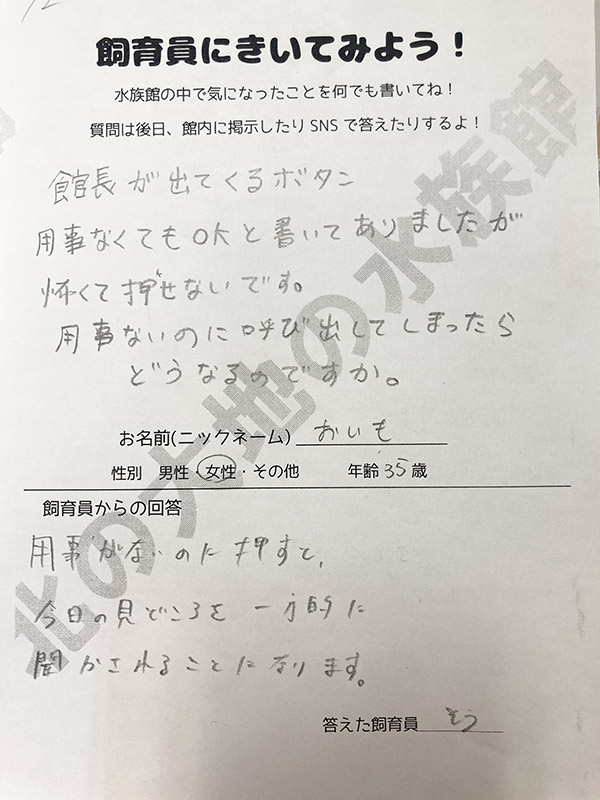 飼育員にきいてみよう!
水族館の中で気になったことを何でも書いてね!
質問は後日、館内に掲示したりSNSで答えたりするよ!
館長が出てくるボタン
用事なくてもOKと書いてありましたが
怖くて押せないです。
用事ないのに呼び出してしまったら
どうなるのですか。
お名前(ニックネーム) おいも
性別 男性・女性・その他 年齢 35 歳
飼育員からの回答
用事がないのに押すと、
今日の見どころを一方的に
聞かされることになります。
答えた飼育員 そう
北の大地の水族館